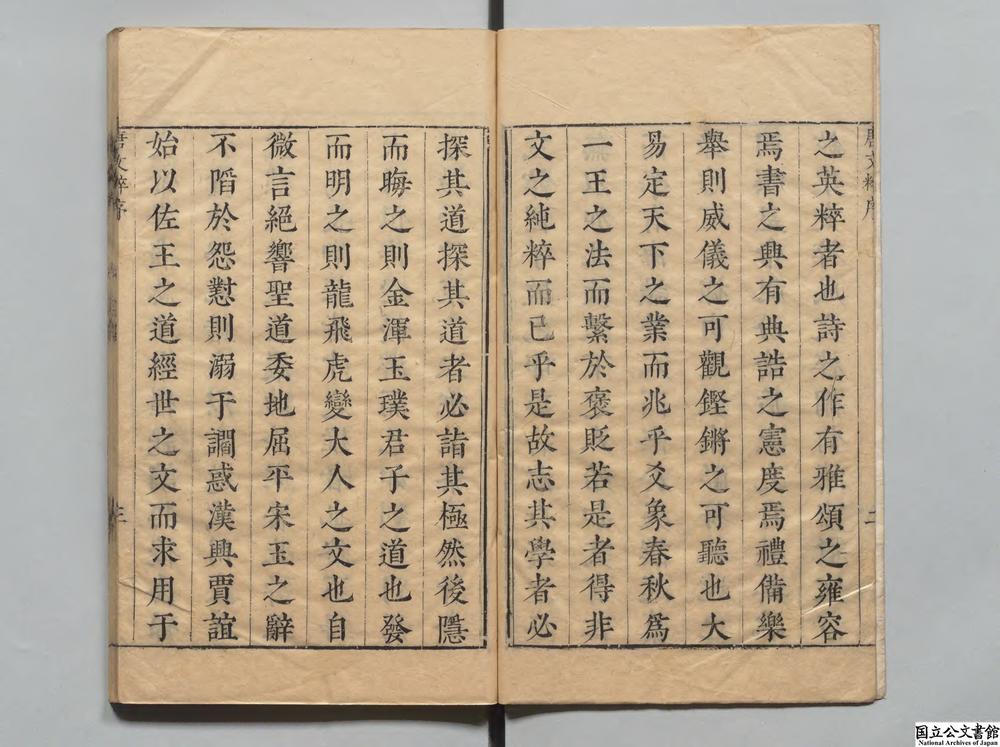 唐文粹序
二
之英粹者也詩之作有雅頌之雍容
焉書之興有典誥之憲度焉禮備樂
舉則威儀之可觀鏗鏘之可聽也大
易定天下之業而兆乎爻象春秋為
一王之法而繫於褒貶若是者得非
文之純粹而已乎是故志其學者必
探其道探其道者必詣其極然後隱
而晦之則金渾玉璞君子之道也發
而明之則龍飛虎變大人之文也自
微言絕響聖道委地屈平宋玉之辭
不陷於怨懟則溺于讇惑漢興賈誼
始以佐王之道經世之文而求用于
唐文粹序
三
国立公文書館
National Archives of Japan